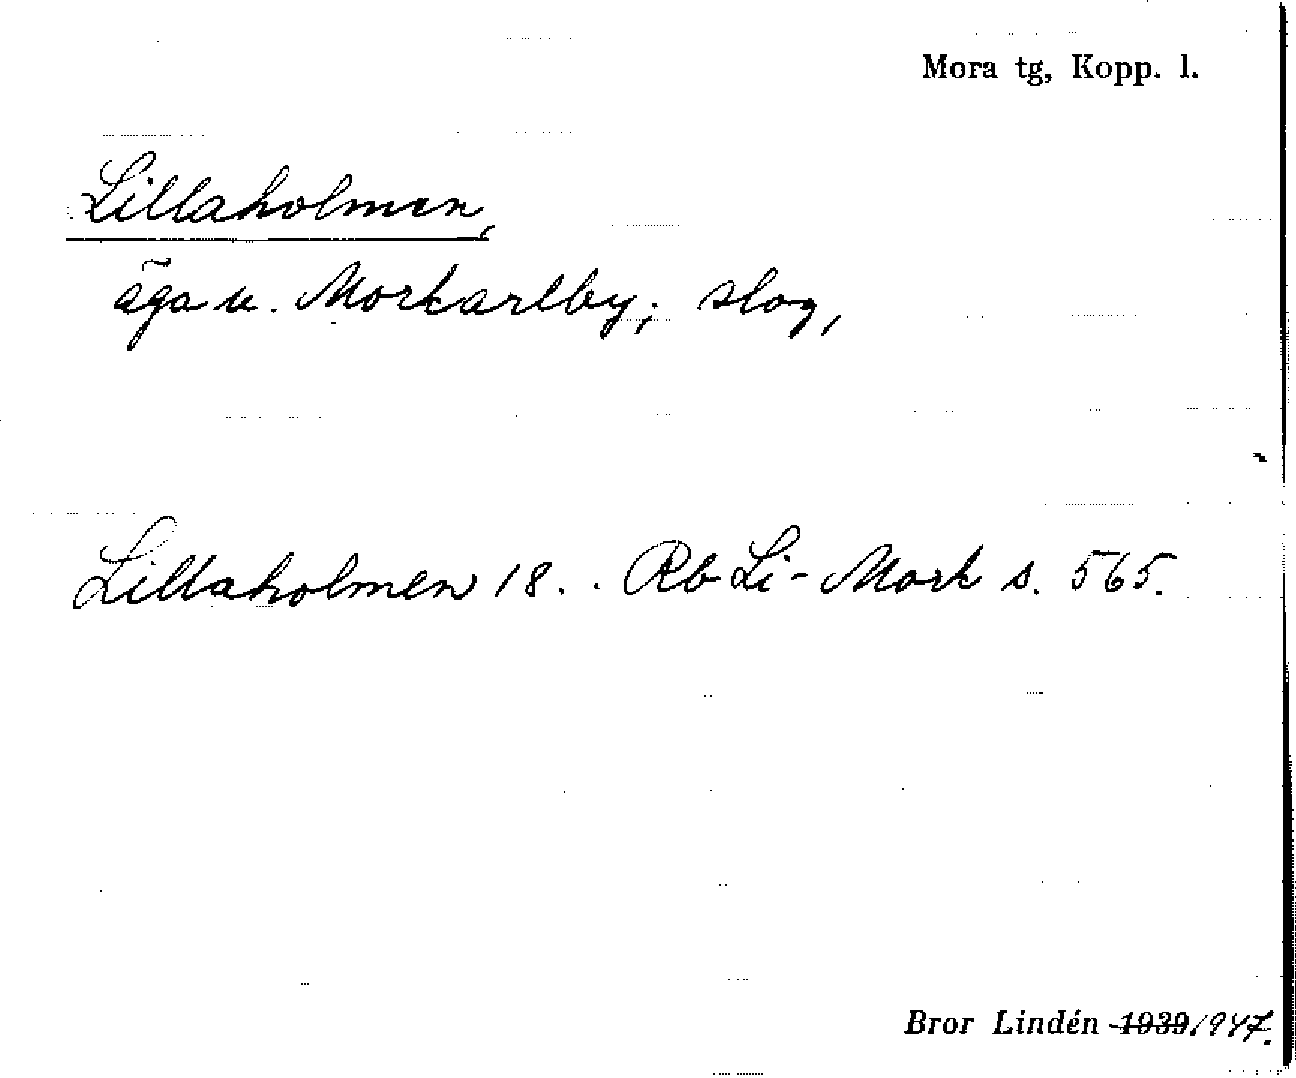 Mora tg, Kopp. l.
Lillaholmen,
äga u. Morkarlby; slog,
Lillaholmen 18. . Rb Li - Mork s. 565.
Bror Lindén 1939 1947.